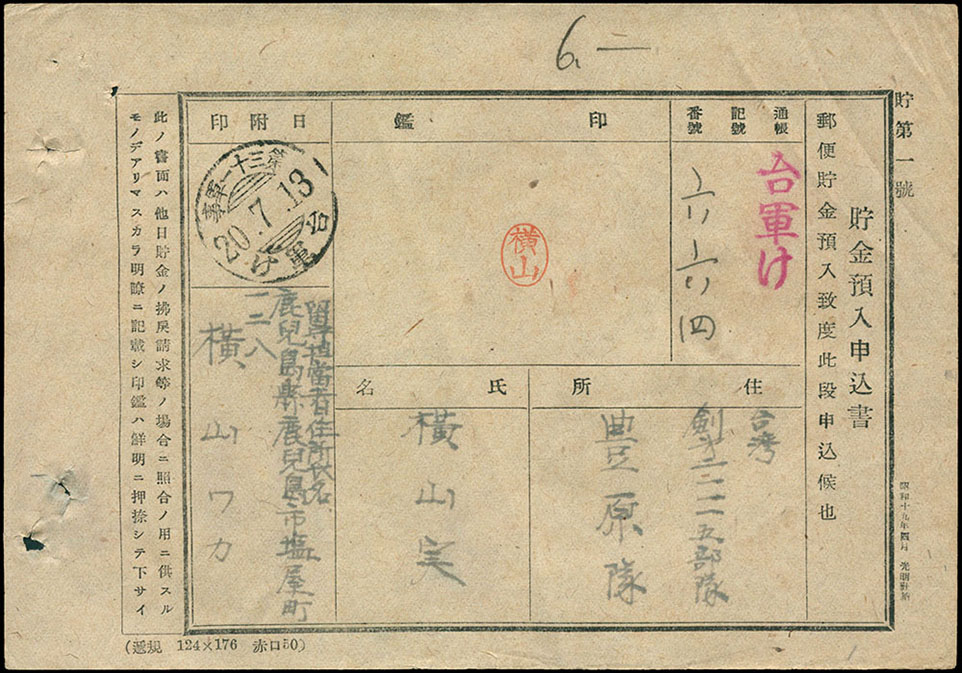 6一
貯第一號
貯金預入申込書
郵便貯金預入致度此段申込候也
通帳
記號
番號
台軍け
六八六八四
印鑑
横山
日附印
第三十一軍事
20.7.13
台軍け
住所
台湾
豊原隊
氏名
横山実
鹿兒島縣鹿兒島市塩屋町
二二八
横山ワカ
此ノ書面ハ他日貯金ノ拂戻請求等ノ場合ニ照合ノ用ニ供スル
モノデアリマスカラ明瞭ニ記載シ印鑑ハ鮮明ニ押捺シテ下サイ
(遞規 124×176 赤口50)